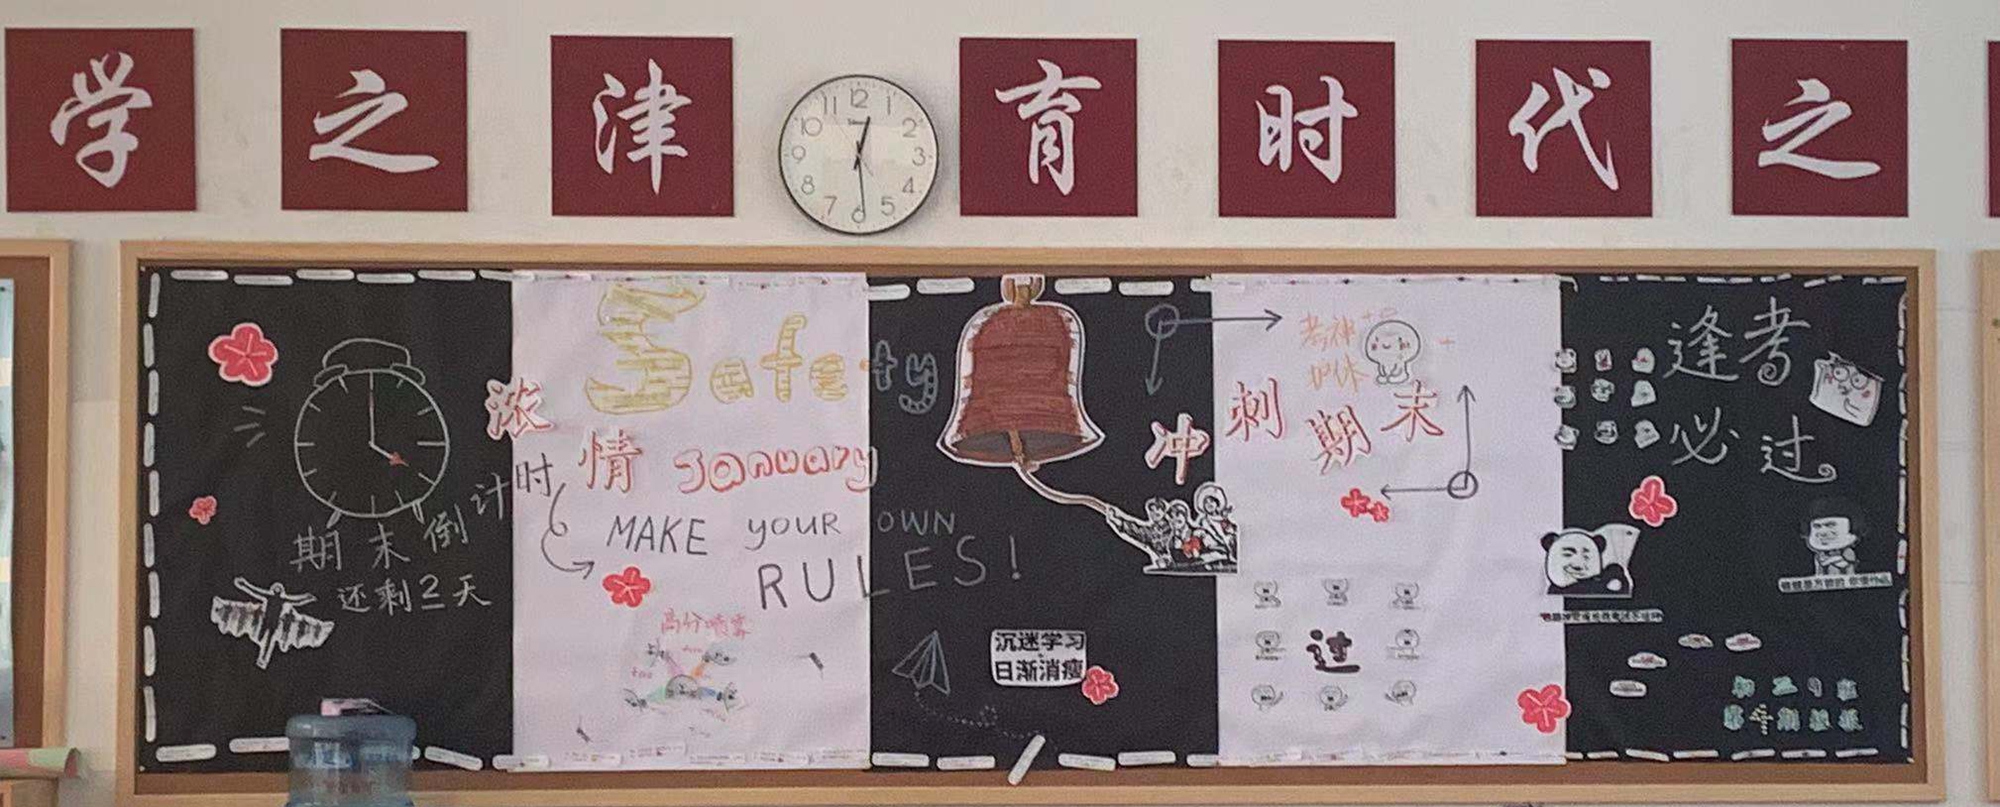 学之津育时代之
12 1 2 3 4 5 6 7 8 9 10 11
期末倒计时
还剩2天
Safety
浓情 January
MAKE YOUR OWN
RULES!
高分喷雾
沉迷学习
日渐消瘦
考神
冲刺期末
过
逢考
必过
初二9班